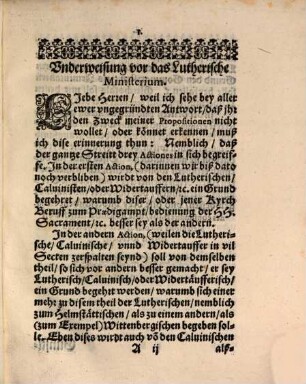 1.
Vnderweisung vor das Lutherische
Ministerium.
LIebe Herren / weil ich sehe bey aller
ewer vngegründten Antwort / daß jhr
den Zweck meiner Propositionen nicht
wollet / oder könnet erkennen / muß
ich dise erinnerung thun: Nemblich / daß
der gantze Streitt drey Actiones in sich begreif-
fe. In der ersten Action, (darinnen wir biß dato
noch verbliben) wirdt von den Lutherischen /
Caluinisten / oder Widertauffern / ɛc. ein Grund
begehret / warumb diser / oder jener Kyrch
Beruff zum Prædigampt / bedienung der HH.
Sacrament / ɛc. besser sey als der andern.
In der andern Action, (weilen die Lutheri-
sche / Caluinische / vnnd Widertauffer in vil
Secten zerspalten seynd) soll von demselben
theil / so sich vor andern besser gemacht / er sey
Lutherisch / Caluinisch / oder Widertäufferisch /
ein Grund begehrt werden / warumb sich einer
mehr zu disem theil der Lutherischen / nemblich
zum Helmstättischen / als zu einem andern / als
(zum Exempel) Wittenbergischen begeben sol-
le. Eben dises wirdt auch võ den Caluinischen
A ij als-